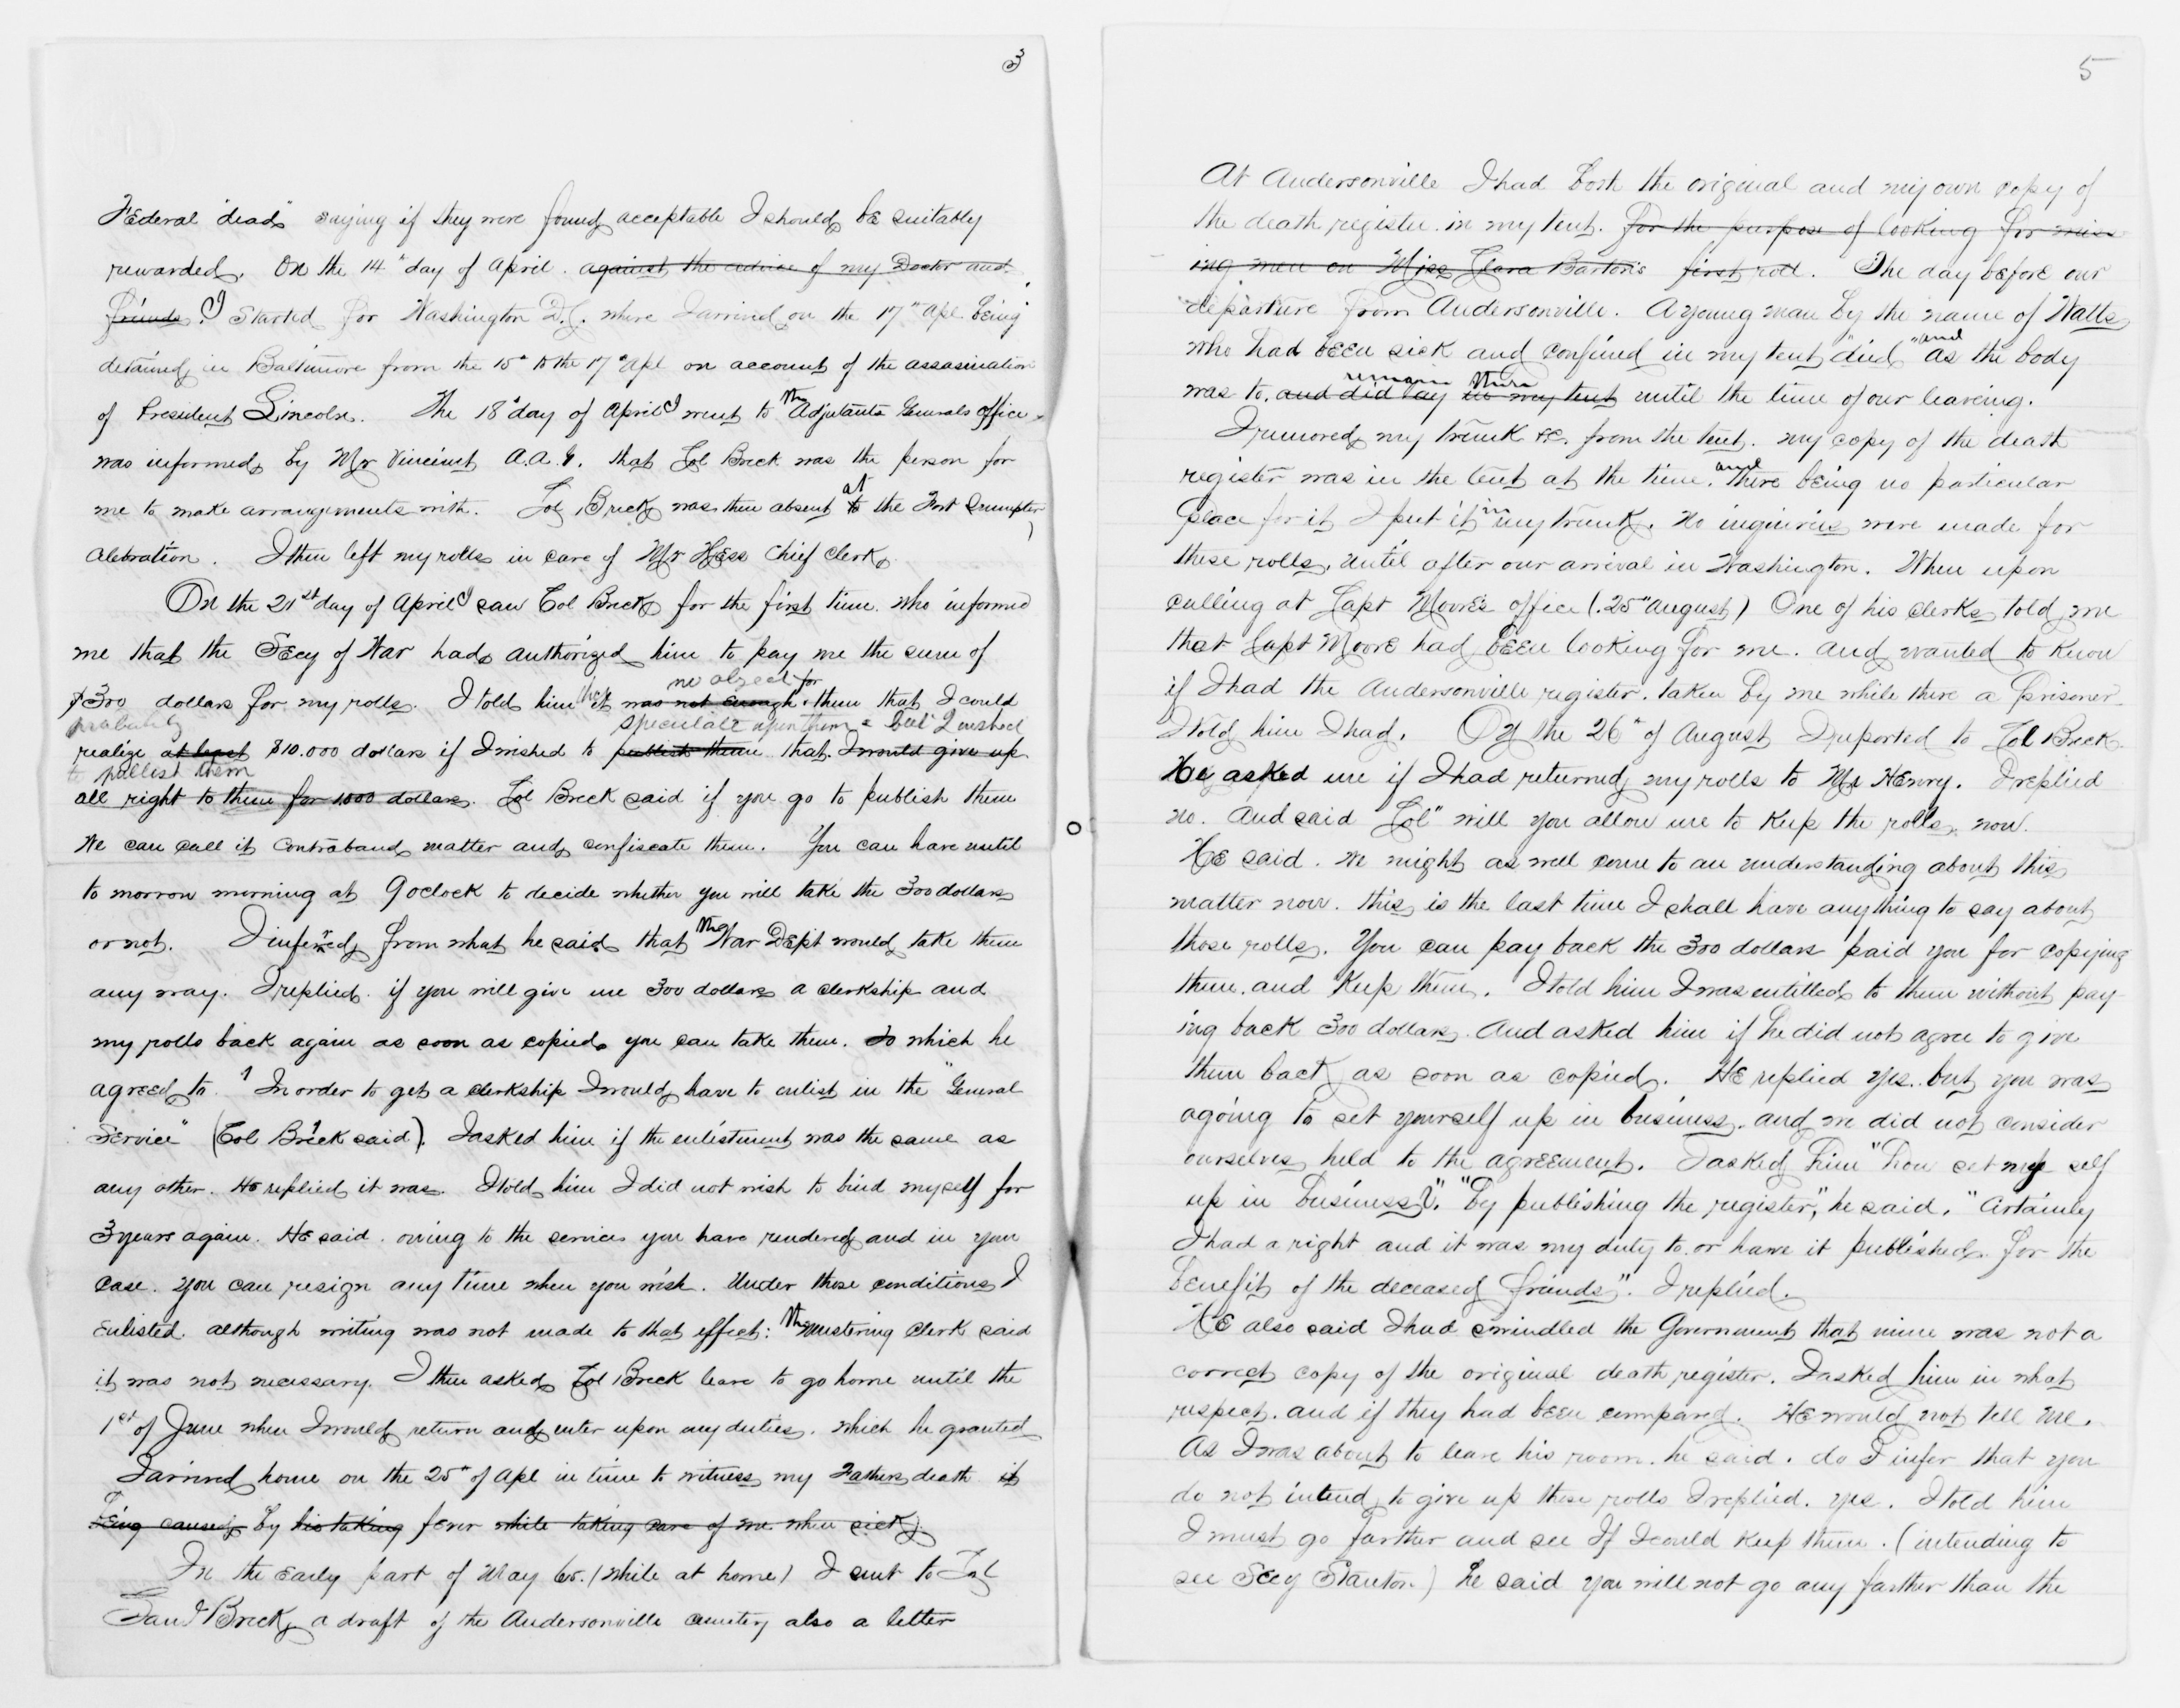 3
Federal "dead" saying if they were found acceptable I should be suitably
rewarded. On the 14th day of April. against the advice of my Doctor and
friends. I started for Washington D.C. where I arrived on the 17th Apl being
detained in Baltimore from the 15th to the 17th Apl on account of the assasination
of President Lincoln. The 18th day of April I went to the Adjutants Generals office
was informed by Mr Vincint A.A.G. that Col Breck was the person for
me to make arrangements with. Col Breck was then absent to at the Fort Sumpter
Celebration. I then left my rolls in care of Mr Hess Chief Clerk.
On the 21st day of April I saw Col Breck for the first time. who informed
me that the Secy of War had authorized him to pay me the sum of
no object for
$300 dollars for my rolls. I told him that it was not enough them that I could
probably speculate upon them & but I wished
realize at least $10.000 dollars if I wished to publish them that. I would give up
to publish them
all right to them for 1000 dollars. Col Breck said if you go to publish them
We can call it Contraband matter and confiscate them. You can have until
to morrow morning at 9 oclock to decide whether you will take the 300 dollars
or not. I inferred from what he said that the War Dept would take them
any way. I replied. if you will give me 300 dollars a clerkship and
my rolls back again as soon as copied, you can take them. to which he
agreed to. In order to get a clerkship I would have to enlist in the "General
Service" (Col Breck said). I asked him if the enlistment was the same as
any other. He replied it was. I told him I did not wish to bind myself for
3 years again. He said. owing to the services you have rendered and in your
case. you can resign any time when you wish. Under those conditions I
enlisted. although writing was not made to that effect: the mustering clerk said
it was not necessary. I then asked Col Breck leave to go home until the
1st of June when I would return and enter upon my duties. which he granted
I arrived home on the 25th of Apl in time to witness my Fathers death it
being caused by his taking fever while taking care of me when sick.
In the early part of May 65. (while at home) I sent to Col
Saml Breck a draft of the Andersonville cemetery also a letter
5
At Andersonville I had both the original and my own copy of
the death register in my tent. for the purpose of looking for miss
ing men on Miss Clara Barton's first roll. The day before our
departure from Andersonville. A young man by the name of Watts
who had been sick and confined in my tent "died" and as the body
remain there
was to. and did lay in my tent until the time of our leaveing.
I removed my trunk &c. from the tent. my copy of the death
register was in the tent at the time. and there being no particular
place for it I put it in my trunk. No inquiries were made for
these rolls, until after our arrival in Washington. When upon
calling at Capt Moore's office (25th August) One of his clerks told me
that Capt Moore had been looking for me. and wanted to know
if I had the Andersonville register. taken by me while there a prisoner
I told him I had. On the 26th of August I reported to Col Breck.
He asked me if I had returned my rolls to Mr Henry. I replied
no. And said "Col" will you allow me to keep the rolls, now.
He said. we might as well come to an understanding about this
matter now. this is the last time I shall have anything to say about
those rolls. You can pay back the 300 dollars paid you for copying
them. and Keep them. I told him I was entitled to them without pay
ing back 300 dollars. And asked him if he did not agree to give
them back as soon as copied. He replied yes. but you was
agoing to set yourself up in business. and we did not consider
ourselves held to the agreement. I asked him "how set my self
up in business?". "by publishing the register", he said. "Certainly
I had a right and it was my duty to. or have it published. for the
benefit of the deceased friends". I replied.
He also said I had swindled the Government that mine was not a
correct copy of the original death register. I asked him in what
respect. and if they had been compared. He would not tell me.
As I was about to leave his room. he said. do I infer that you
do not intend to give up these rolls I replied. yes. I told him
I must go farther and see If I could keep them. (intending to
see Secy Stanton.) he said you will not go any farther than the